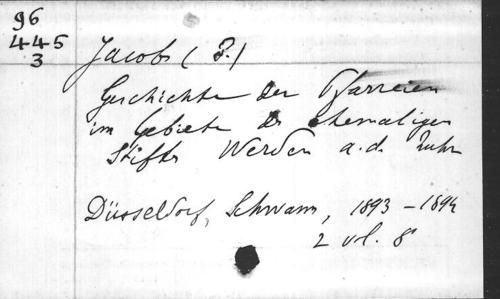 96
445
3
Jacobs (P.)
Geschichte der Pfarreien
im Gebiete des ehemaligen
Stiftes Werden a.d. Ruhr
Düsseldorf, Schwann, 1893-1894
2 vol. 8°